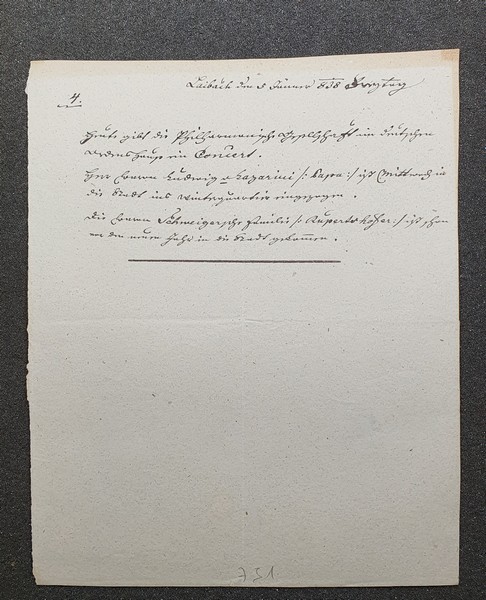 Laibach den 5 Jänner 838 Freytag
4.
Heute gibt die Philharmonische Gesellschaft im deutschen
Ordens Hause ein Concert.
Herr Baron Ludwig Lazarini /: Kapra :/ ist Mittwoch in
die Stadt ins Winterquartier eingezogen.
Die Baron Schweigersche Familie /: Rupertshofer :/ ist schon
vor dem neuen Jahr in die Stadt gekommen.
751